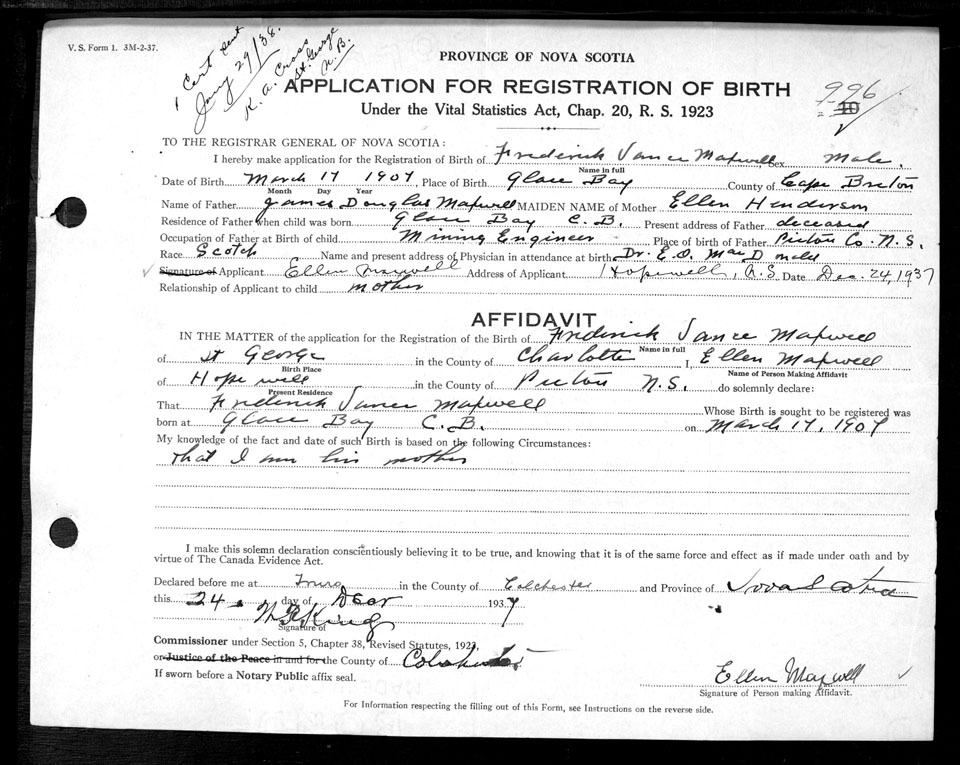 V. S. Form 1. 3M-2-37.
1 Cert sent
Jany 29/38.
K. A. Cross
St. George
N. B.
PROVINCE OF NOVA SCOTIA
APPLICATION FOR REGISTRATION OF BIRTH
996
10
Under the Vital Statistics Act, Chap. 20, R. S. 1923
TO THE REGISTRAR GENERAL OF NOVA SCOTIA:
I hereby make application for the Registration of Birth of Frederick Vance Maxwell Sex Male.
Name in full
Date of Birth March 17 1907 Place of Birth Glace Bay County of Cape Breton
Month Day Year
Name of Father James Douglas Maxwell MAIDEN NAME of Mother Ellen Henderson
Residence of Father when child was born Glace Bay C. B. Present address of Father deceased
Occupation of Father at Birth of child Mining Engineer Place of birth of Father Pictou Co. N. S.
Race Scotch Name and present address of Physician in attendance at birth Dr. E. O. MacDonald
Signature of Applicant Ellen Maxwell Address of Applicant Hopewell, N.S. Date Dec. 24, 1937
Relationship of Applicant to child mother
AFFIDAVIT
IN THE MATTER of the application for the Registration of the Birth of Frederick Vance Maxwell
Name in full
of St George in the County of Charlotte I, Ellen Maxwell
Birth Place Name of Person Making Affidavit
of Hopewell in the County of Pictou N.S. do solemnly declare:
Present Residence
That Frederick Vance Maxwell Whose Birth is sought to be registered was
born at Glace Bay C.B. on March 17, 1907
My knowledge of the fact and date of such Birth is based on the following Circumstances:
that I am his mother
I make this solemn declaration conscientiously believing it to be true, and knowing that it is of the same force and effect as if made under oath and by
virtue of The Canada Evidence Act.
Declared before me at Truro in the County of Colchester and Province of Nova Scotia
this 24. day of Decr 1937
King
Signature of
Commissioner under Section 5, Chapter 38, Revised Statutes, 1923,
or Justice of the Peace in and for the County of Colchester
If sworn before a Notary Public affix seal.
Ellen Maxwell
Signature of Person making Affidavit.
For Information respecting the filling out of this Form, see Instructions on the reverse side.